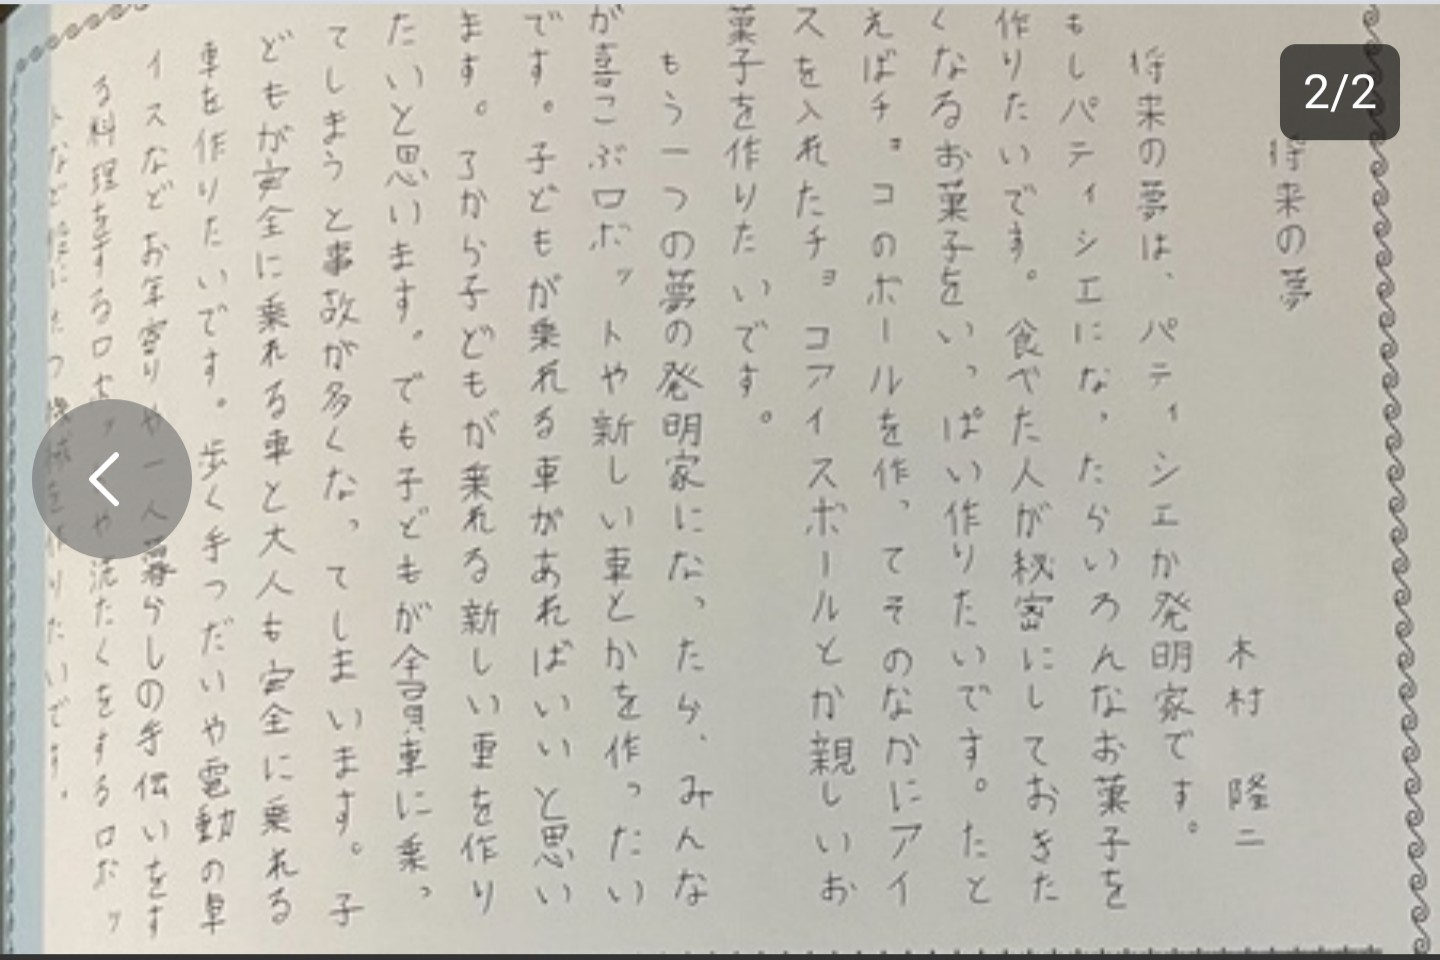 2/2
将来の夢
木村 隆二
将来の夢は、パティシエか発明家です。
もしパティシエになったらいろんなお菓子を
作りたいです。食べた人が秘密にしておきた
くなるお菓子をいっぱい作りたいです。たと
えばチョコのボールを作ってそのなかにアイ
スを入れたチョコアイスボールとか親しいお
菓子を作りたいです。
もう一つの夢の発明家になったら、みんな
が喜こぶロボットや新しい車とかを作ったい
です。子どもが乗れる車があればいいと思い
ます。了から子どもが乗れる新しい車を作り
たいと思います。でも子どもが全員車に乗っ
てしまうと事故が多くなってしまいます。子
どもが安全に乗れる車と大人も安全に乗れる
車を作りたいです。歩く手つだいや電動の車
イスなどお年寄りや一人暮らしの手伝いをす
る料理をするロボットや洗たくをするロボッ
など 機械を作りたいです。